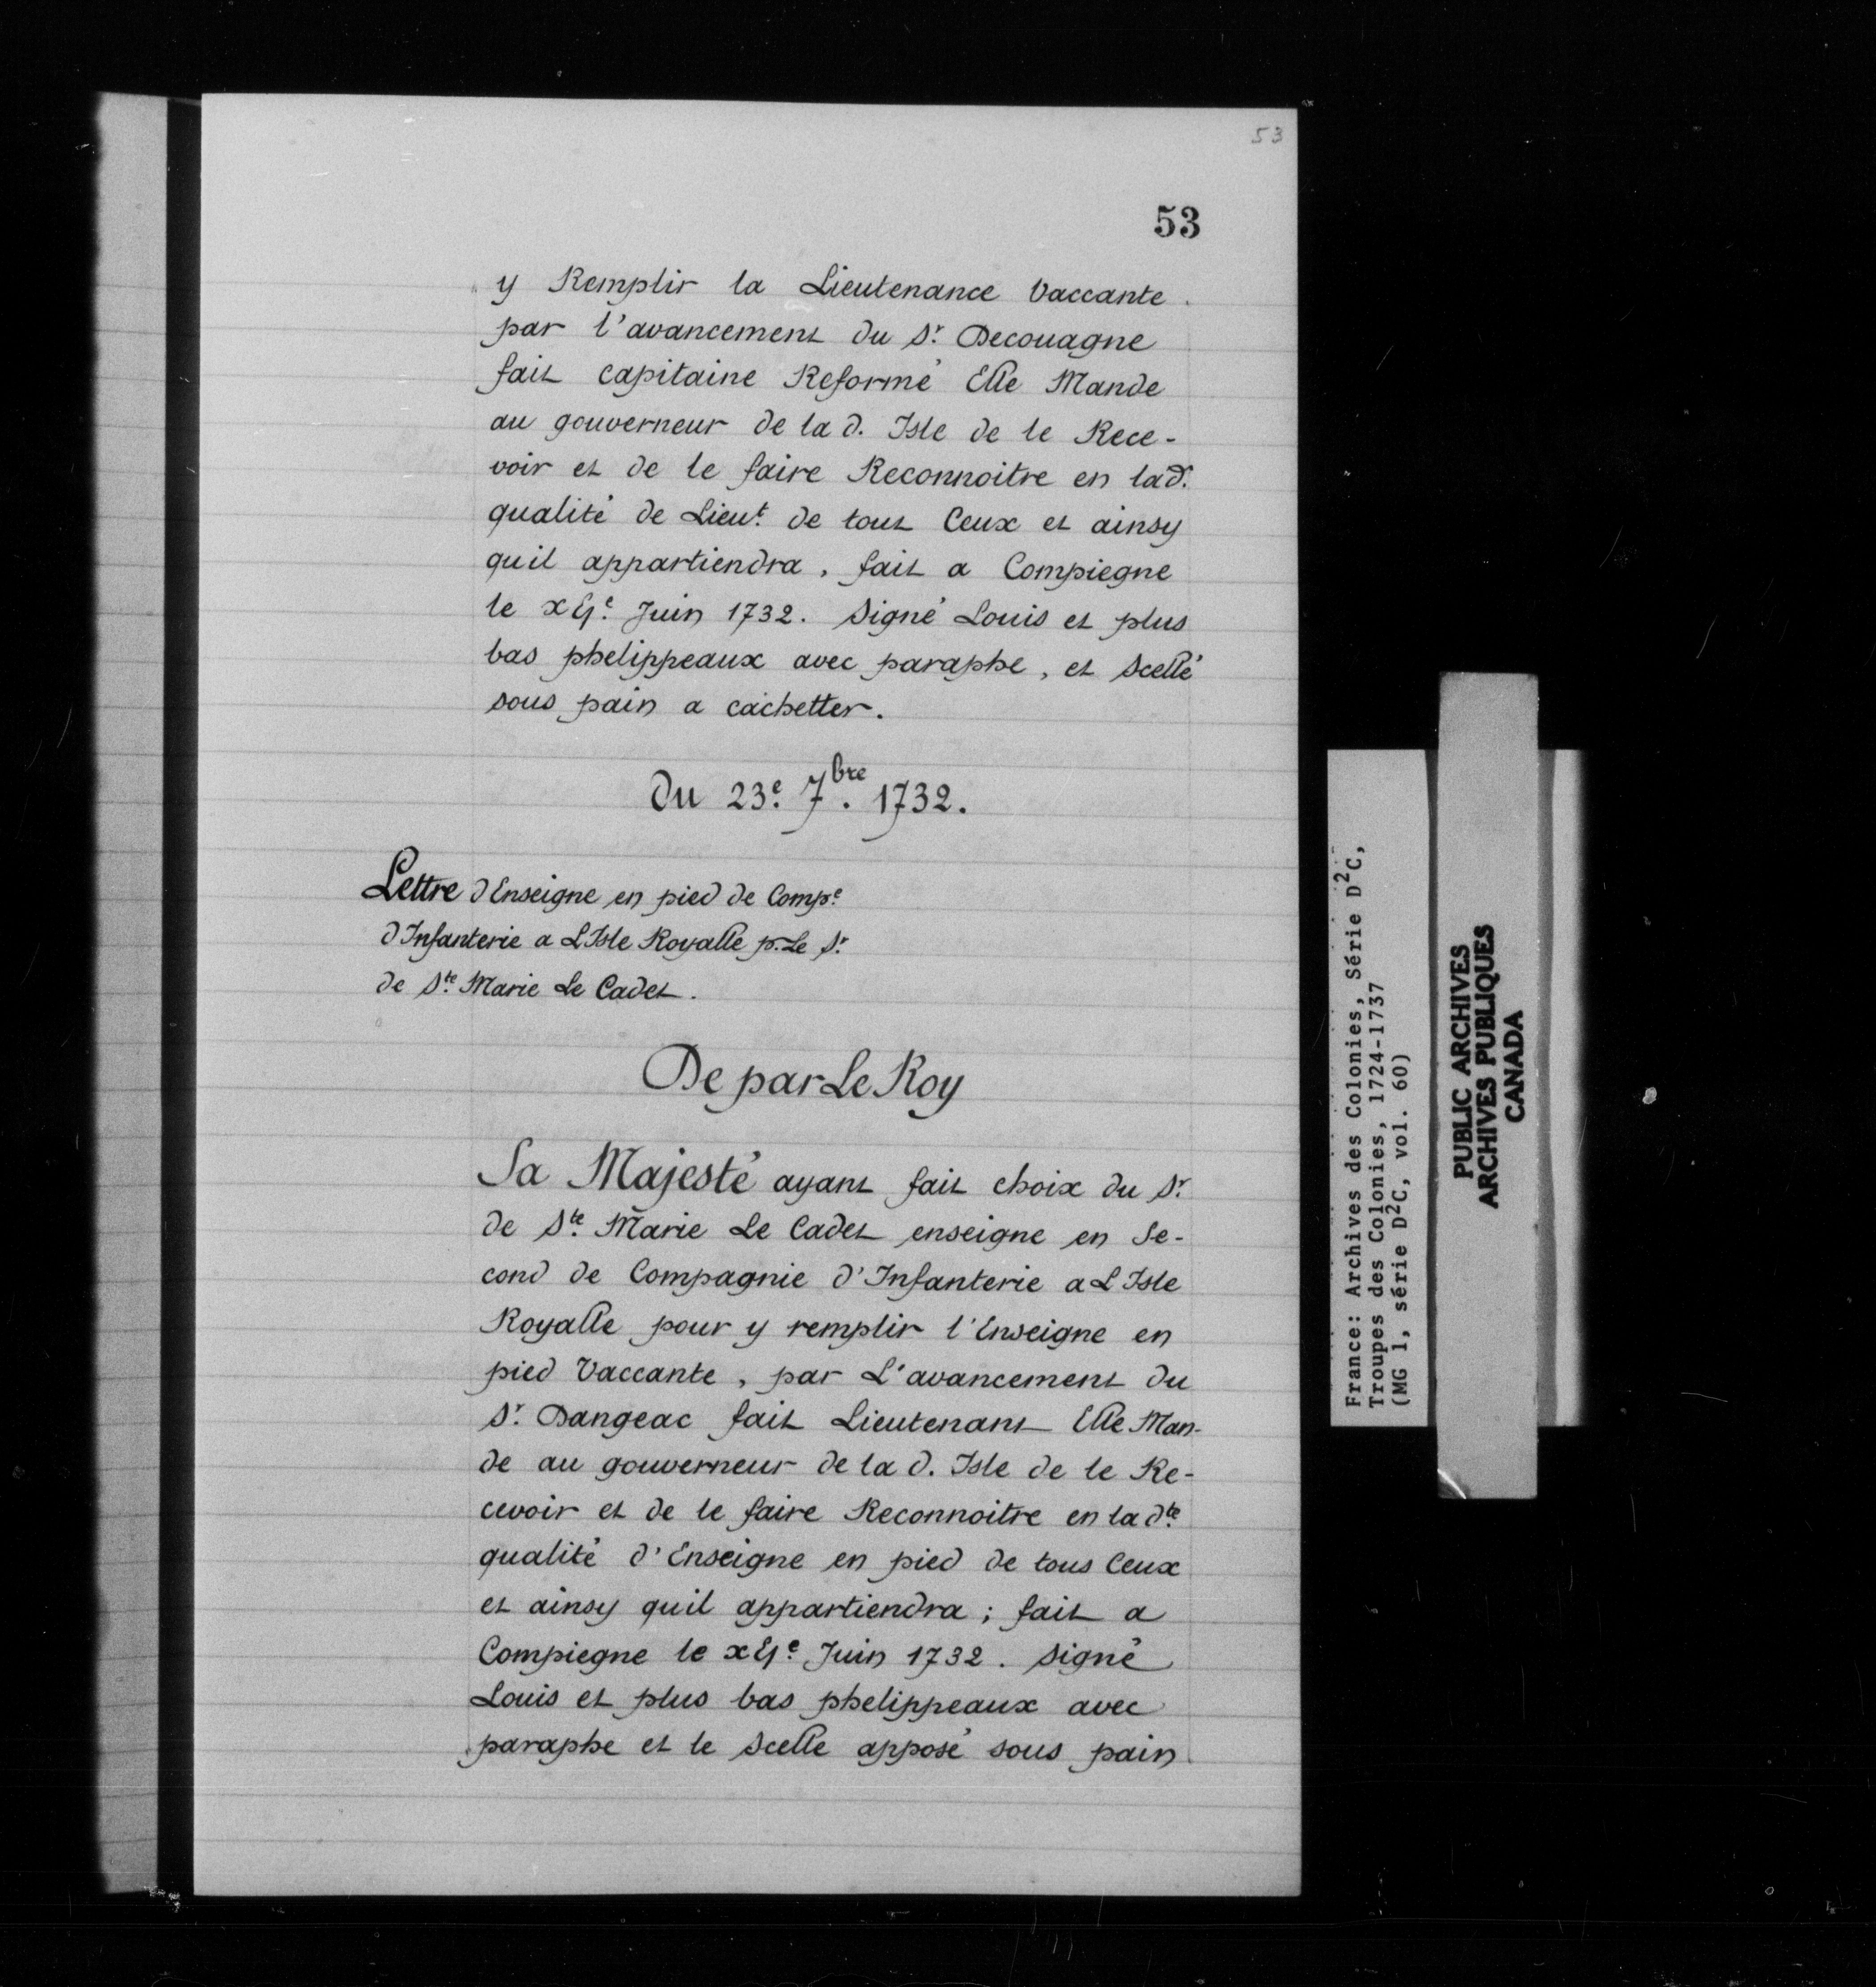 53
53
y Remplir la Lieutenance Vaccante
par l'avancement du Sr. Decouagne
fait capitaine Reformé Elle Mande
au gouverneur de la d. Isle de le Rece-
voir et de le faire Reconnoitre en lad.
qualité de Lieut. de tout Ceux et ainsy
quil appartiendra, fait a Compiegne
le Juin 1732. Signé Louis et plus
bas phelippeaux avec paraphe, et Scellé
sous pain a cachetter.
Du 23e. 7bre. 1732.
Lettre d Enseigne en pied de Compe.
d Infanterie a L Isle Royalle p. Le Sr.
de Ste. Marie Le Cadet.
De par Le Roy
Sa Majesté ayant fait choix du Sr.
de Ste. Marie Le Cadet enseigne en Se-
cond de Compagnie d'Infanterie a L Isle
Royalle pour y remplir l'Enseigne en
pied Vaccante, par L'avancement du
Sr. Dangeac fait Lieutenant Elle Man-
de au gouverneur de la d. Isle de le Re-
cevoir et de le faire Reconnoitre en la dte.
qualité d'Enseigne en pied de tous Ceux
et ainsy quil appartiendra; fait a
Compiegne le Juin 1732. Signé
Louis et plus bas phelippeaux avec
paraphe et le Scelle apposé sous pain
France: Archives des Colonies, Série D2C,
Troupes des Colonies, 1724-1737
(MG 1, série D2C, vol. 60)
PUBLIC ARCHIVES
ARCHIVES PUBLIQUES
CANADA